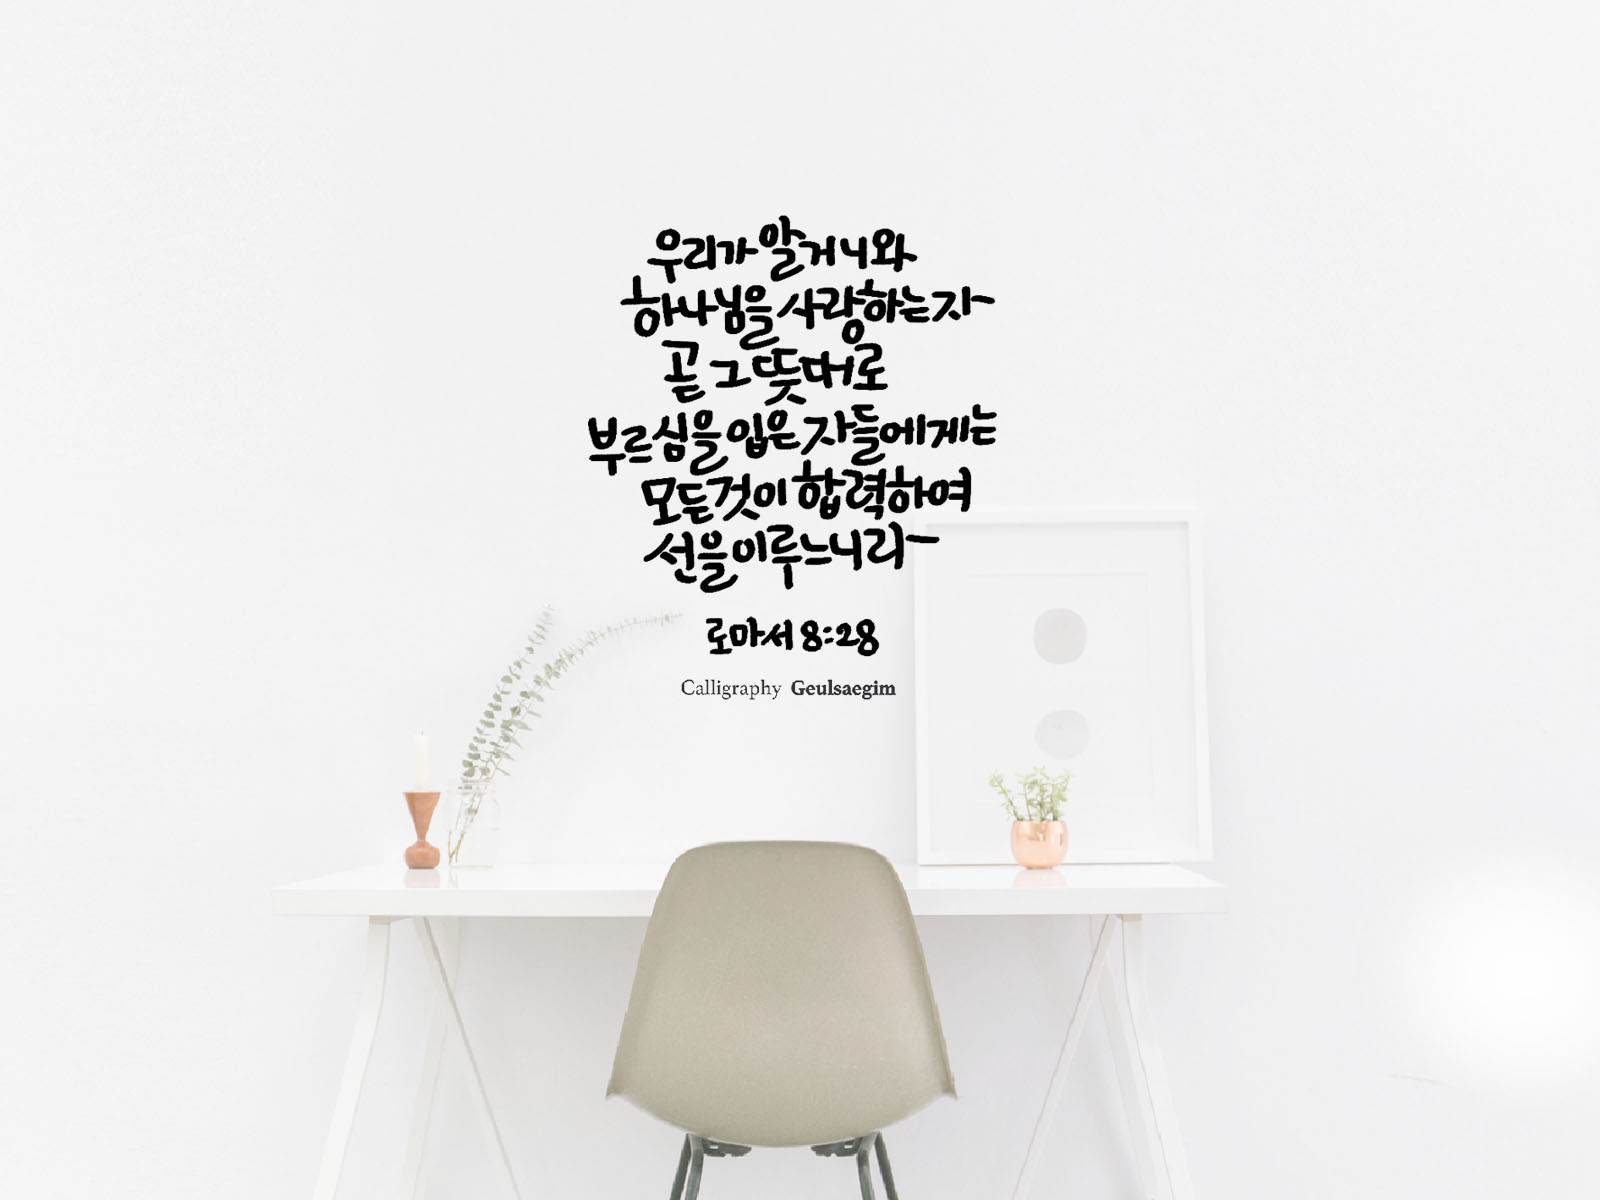 우리가 알거니와
하나님을 사랑하는 자
곧 그 뜻대로
부르심을 입은 자들에게는
모든 것이 합력하여
선을 이루느니라
로마서 8:28
Calligraphy Geulsaegim